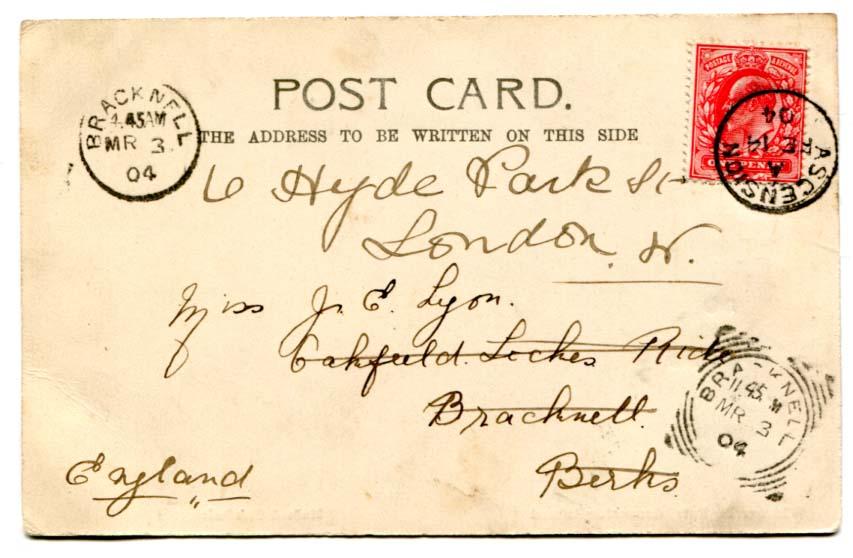 POST CARD.
THE ADDRESS TO BE WRITTEN ON THIS SIDE
POSTAGE & REVENUE
ONE PENNY
ASCENSION
A
FE 14
04
BRACKNELL
4.45AM
MR 3
04
6 Hyde Park St
London. W.
Miss J. E. Lyon.
Oakfield. Ride
Bracknell.
Berks.
England
BRACKNELL
11.45 M
MR 3
04